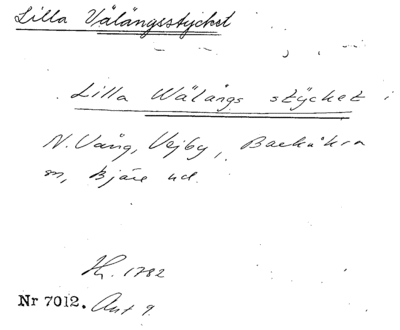 Lilla Välängsstycket
Lilla Wälångs stÿcket i
N. Vång, Vejby, Backåkra
m, Bjäre hd.
H. 1782
Nr 7012. Akt 9.